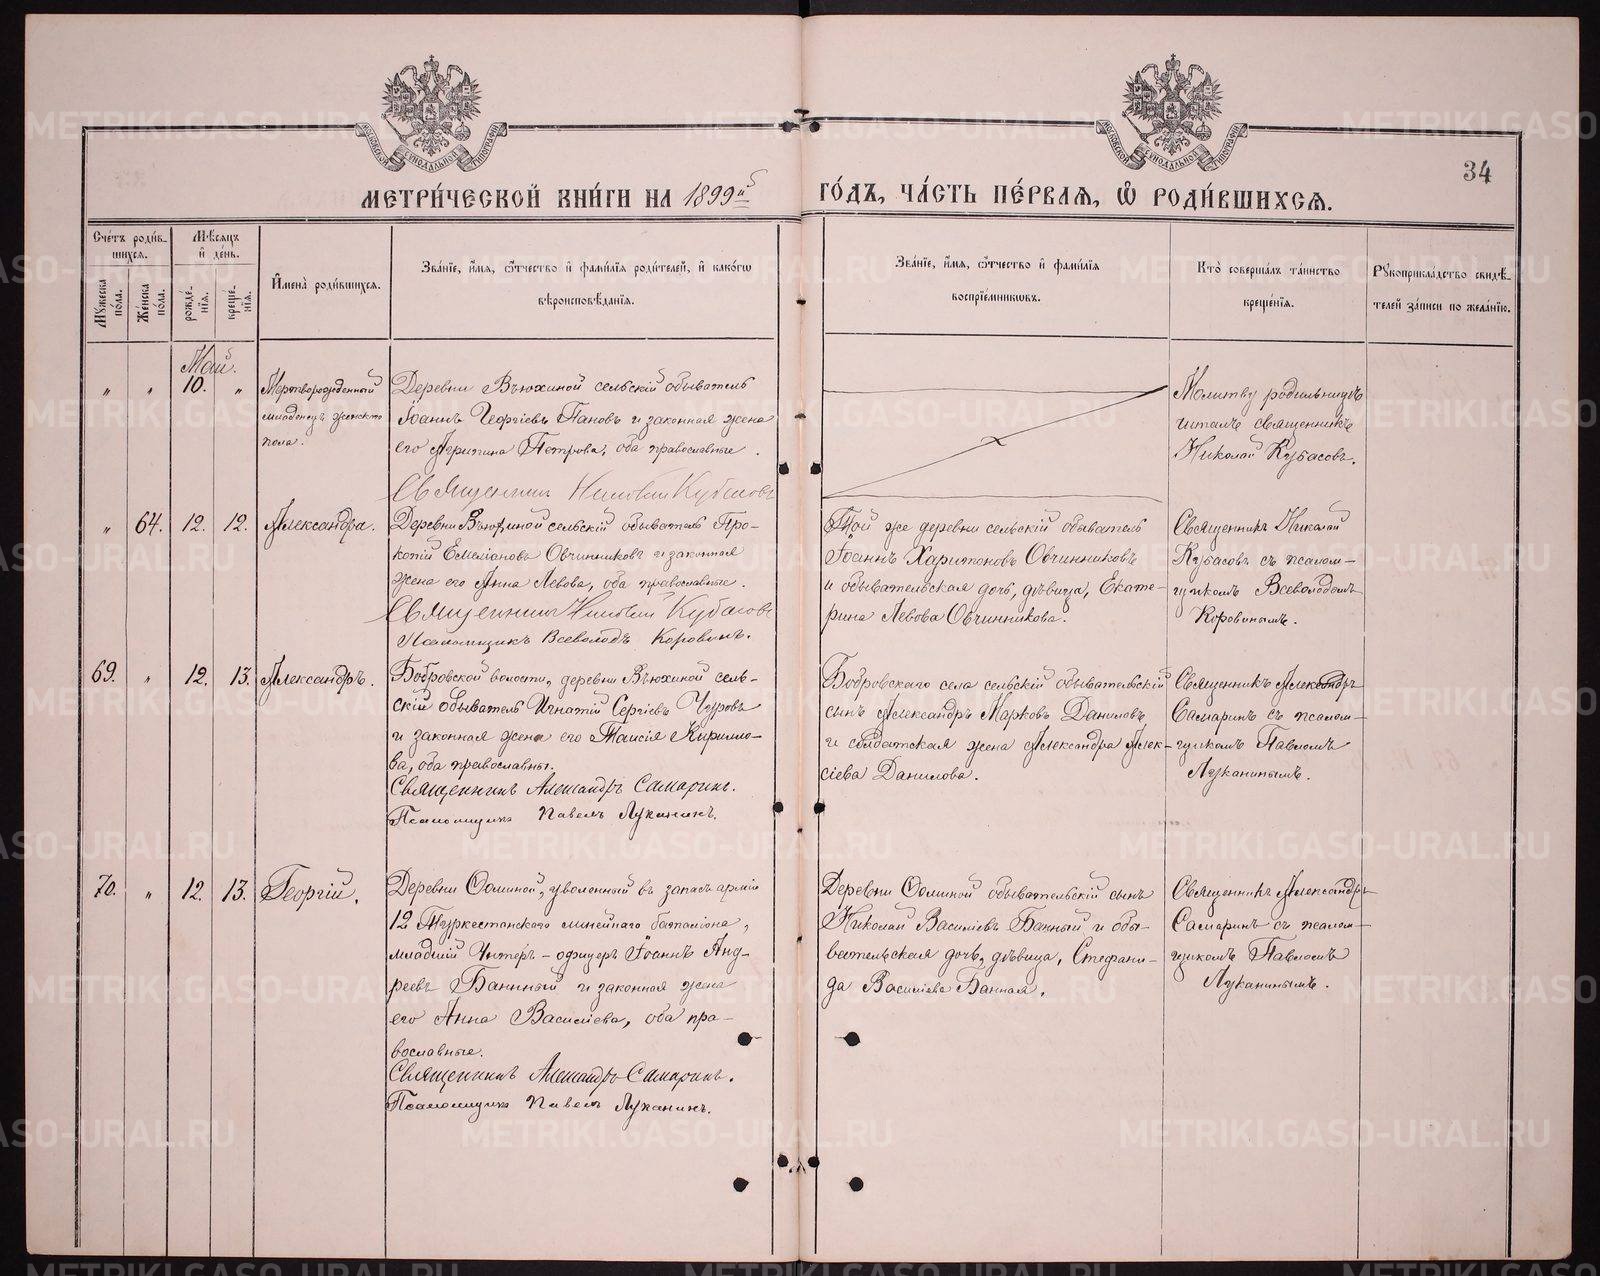 МОСКОВСКОЙ СѴНОДАЛЬНОЙ ТИПОГРАФІИ
МОСКОВСКОЙ СѴНОДАЛЬНОЙ ТИПОГРАФІИ
34
МЕТРИ́ЧЕСКОЙ КНИ́ГИ НА 1899й
ГО́ДЪ, ЧА́СТЬ ПЕ́РВАЯ, Ѡ РОДИ́ВШИХСЯ.
Сче́тъ роди́в-
шихся.
Мѣ́сяцъ
и де́нь.
Мужеска по́ла.
Же́нска по́ла.
рожде́-
нія.
креще́-
нія.
Имена̀ роди́вшихся.
Зва́ніе, имя, ѻтчество и фами́лія роди́телей, и како́гѡ
вѣроисповѣ́данія.
Зва́ніе, имя, ѻтчество и фами́лія
воспріе́мниковъ.
Кто̀ соверша́лъ та́инство
креще́нія.
Рукоприкла́дство свидѣ́-
телей за́писи по жела́нію.
Май.
„ „ 10. „
Мертворожденный
младенецъ женского
пола.
Деревни Вьюхиной сельскій обыватель
Іоаннъ Георгіевъ Пановъ и законная жена
его Агрипина Петрова, оба православные.
Священникъ Николай Кубасовъ
Молитву родильницѣ
читалъ священникъ
Николай Кубасовъ.
„ 64. 12. 12. Александра.
Деревни Вьюхиной сельскій обыватель Про-
копій Емеліановъ Овчинниковъ и законная
жена его Анна Левова, оба православные.
Священникъ Николай Кубасовъ
Псаломщикъ Всеволодъ Коровинъ.
Той же деревни сельскій обыватель
Іоаннъ Харитоновъ Овчинниковъ
и обывательская дочь, дѣвица, Екате-
рина Левова Овчинникова.
Священникъ Николай
Кубасовъ съ псалом-
щикомъ Всеволодомъ
Коровинымъ.
69. „ 12. 13. Александръ.
Бобровской волости, деревни Вьюхиной сель-
скій обыватель Игнатій Сергіевъ Чуровъ
и законная жена его Таисія Кирилло-
ва, оба православны.
Священникъ Александръ Самаринъ.
Псаломщикъ Павелъ Луканинъ.
Бобровскаго села сельскій обывательскій
сынъ Александръ Марковъ Даниловъ,
и солдатская жена Александра Алек-
сіева Данилова.
Священникъ Александръ
Самаринъ съ псалом-
щикомъ Павломъ
Луканинымъ.
70. „ 12. 13. Георгій.
Деревни уволенный въ запасъ арміи
12 Туркестанского линейнаго баталіона,
младшій Унтеръ-офицеръ Іоаннъ Анд-
реевъ Банный и законная жена
его Анна Василіева, оба пра-
вославные.
Священникъ Александръ Самаринъ.
Псаломщикъ Павелъ Луканинъ.
Деревни обывательскій сынъ
Николай Василіевъ Банный и обы-
вательская дочь, дѣвица, Стефани-
да Василіева Банная.
Священникъ Александръ
Самаринъ съ псалом-
щикомъ Павломъ
Луканинымъ.
METRIKI.GASO-URAL.RU